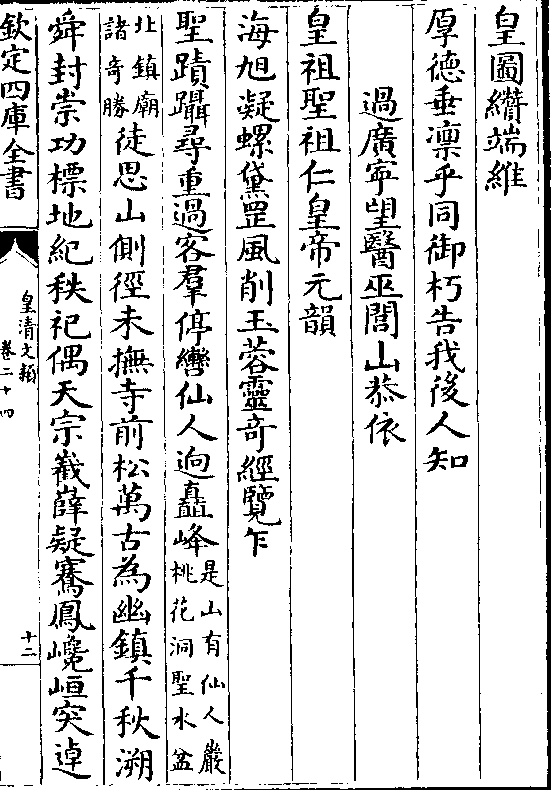 皇圖纘端維
厚德垂凜乎同御朽告我後人知
過廣寧望醫巫閭山恭依
皇祖聖祖仁皇帝元韻
海旭凝螺黛罡風削玉蓉靈奇經覽乍
聖蹟躡尋重過客羣停轡仙人逈矗峰是山有仙人巖
桃花洞聖水盆
北鎮廟
諸奇勝徒思山側徑未撫寺前松萬古為幽鎮千秋溯
舜封崇功標地紀秩祀偶天宗嶻嶭疑騫鳳巉峘突逴
欽定四庫全書
皇清文穎
卷二十四
十二